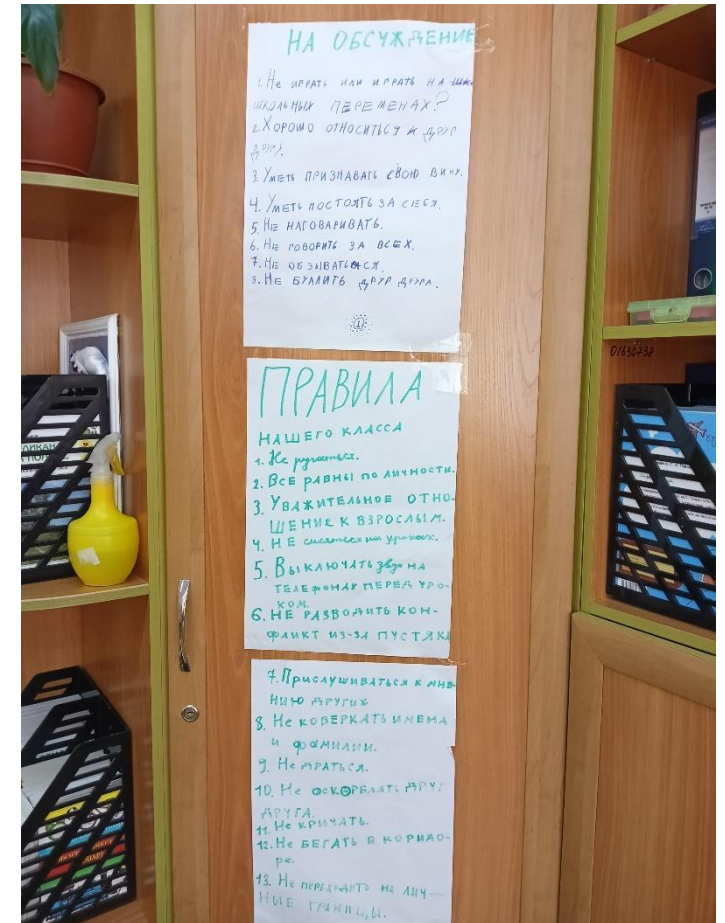 НА ОБСУЖДЕНИЕ
1. Не играть или играть на шк
школьных переменах?
2. Хорошо относиться к друг
другу.
3. Уметь признавать свою вину.
4. Уметь постоять за себя.
5. Не наговаривать.
6. Не говорить за всех.
7. Не обзываться.
8. Не буллить друг друга.
ПРАВИЛА
НАШЕГО КЛАССА
1. Не ругаться.
2. Все равны по личности.
3. Уважительное отно-
шение к взрослым.
4. НЕ смеяться на уроках.
5. Выключать звук на
телефонах перед уро-
ком.
6. НЕ РАЗВОДИТЬ КОН-
фликт из-за пустяка
7. Прислушиваться к мне-
нию других
8. Не коверкать имена
и фамилии.
9. Не драться.
10. Не оскорблять друг
друга.
11. Не кричать.
12. Не бегать в коридо-
ре.
13. Не переходить на лич-
ные границы.
01630738